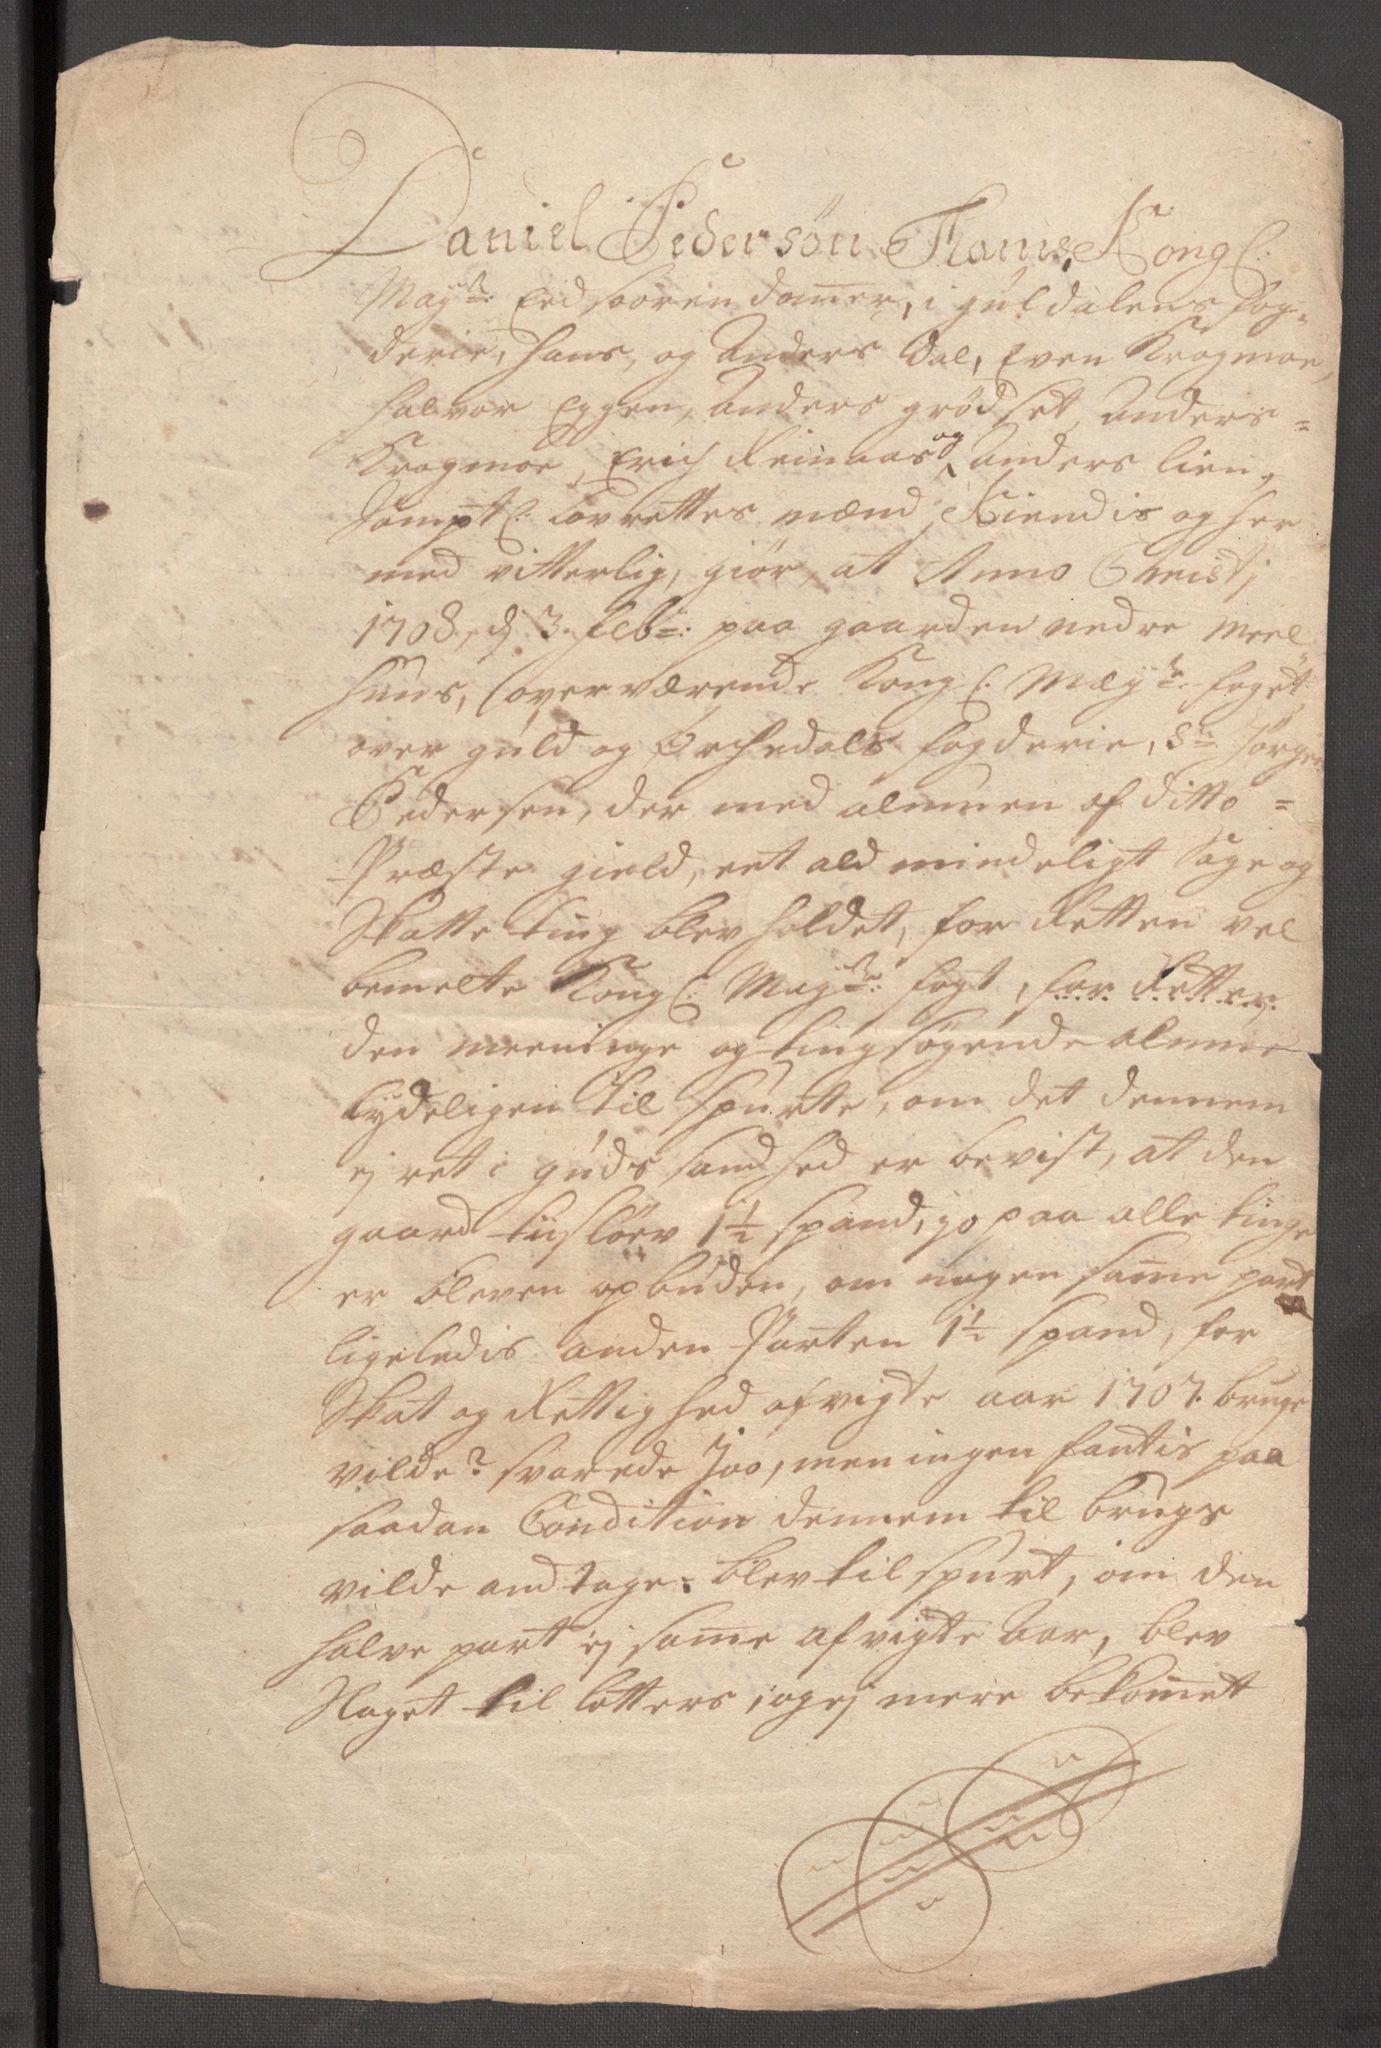 Daniel Pedersøn Flams, Kongl:
Mayts: Eedsooren domer, i guldalens fog-
derie, Hans, og Anders Dal, Even Krogmoe,
Halvor Eggen, Anders grødset, Anders =
Krogmoe, Erich Reinaas og Anders lien,
Samptl: Lovrettes mænd, Kiendis og her
med vitterlig, giør, at Anno Christj
1708, d 3. feb: paa gaarden nedre Meel
huus, overværende Kongl. Mayts foget
over guld og Orchedals fogderie, Sr: Jørgen
Pedersen, der med almuen af ditto =
Præste gield, eet ald mindeligt Sage og
Skatte ting blev holdet, for Retten vel
bemelte Kongl: Mayts: fogt, for Retten
den meeninge og tingsøgende almue
lydeligen til spurtte, om det dennem
ej ret i guds sandhed er bevist, at den
gaard tiisløev 1½ spand, jo paa alle tinge
er bleven opbuden, om nogen same part
ligeledis anden Parten 1½ spand, for
Skat og Rettighed afvigte aar 1707. bruge
vilde? svarede Joo, men ingen fantis paa
saadan Condition dennem til brugs
vilde andtage: blev til spurt, om den
halve part ej same afvigte Aar, blev
Slaget til lotters, og ej mere bekomett